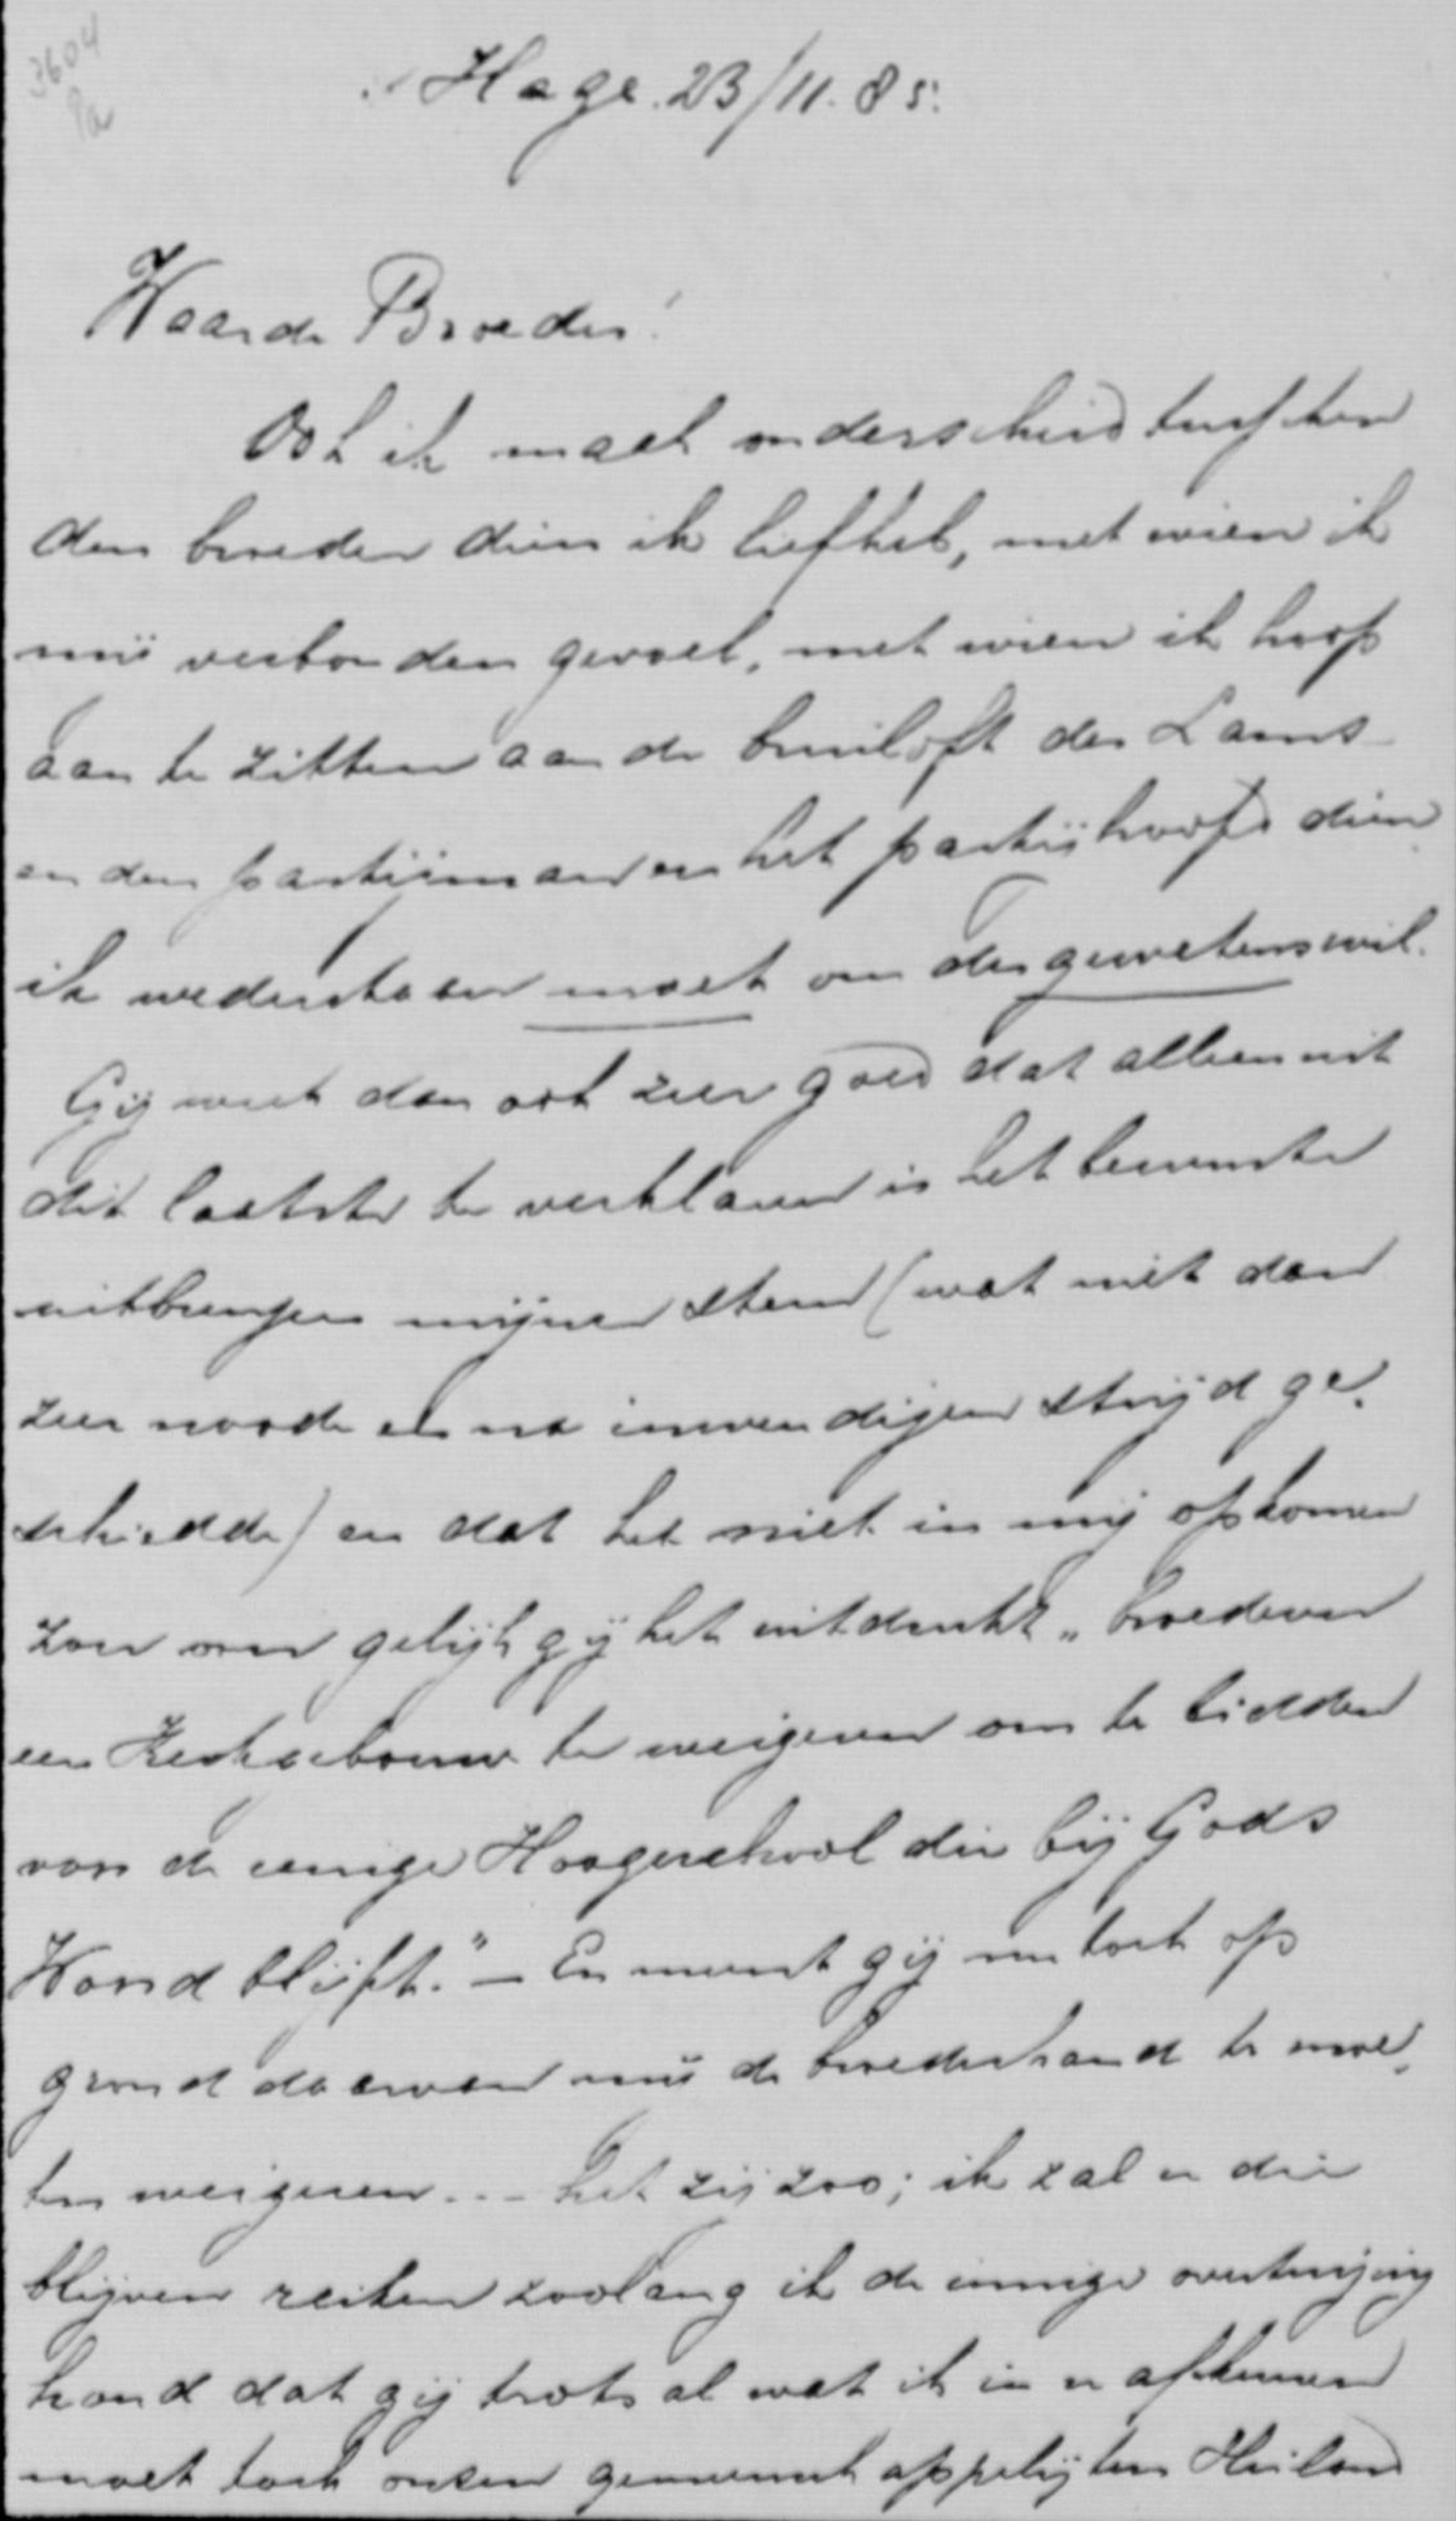 3604
9a
's Hage. 23/11. 85.
Waarde Broeder!
Ook ik maak onderscheid tusschen
den broeder dien ik liefheb, met wien ik
mij verbonden gevoel, met wien ik hoop
aan te zitten aan de bruiloft des Lams
en den partijman en het partijhoofd dien
ik wederstaan moet om des gewetenswil.
Gij weet dan ook zeer goed dat alleen uit
dit laatste te verklaren is het bewuste
uitbrengen mijner stem (wat niet dan
zeer noode en na inwendigen strijd ge-
schiedde) en dat het niet in mij opkomen
zou om gelijk gij het uitdrukt „broederen
een Kerkgebouw te weigeren om te bidden
voor de eenige Hoogeschool die bij Gods
Woord blijft." — En meent gij nu toch op
grond daarvan mij de broederhand te moe-
ten weigeren... het zij zoo; ik zal u die
blijven reiken zoolang ik de innige overtuiging
houd dat gij trots al wat ik in u afkeuren
moet toch onzen gemeenschappelijken Heiland